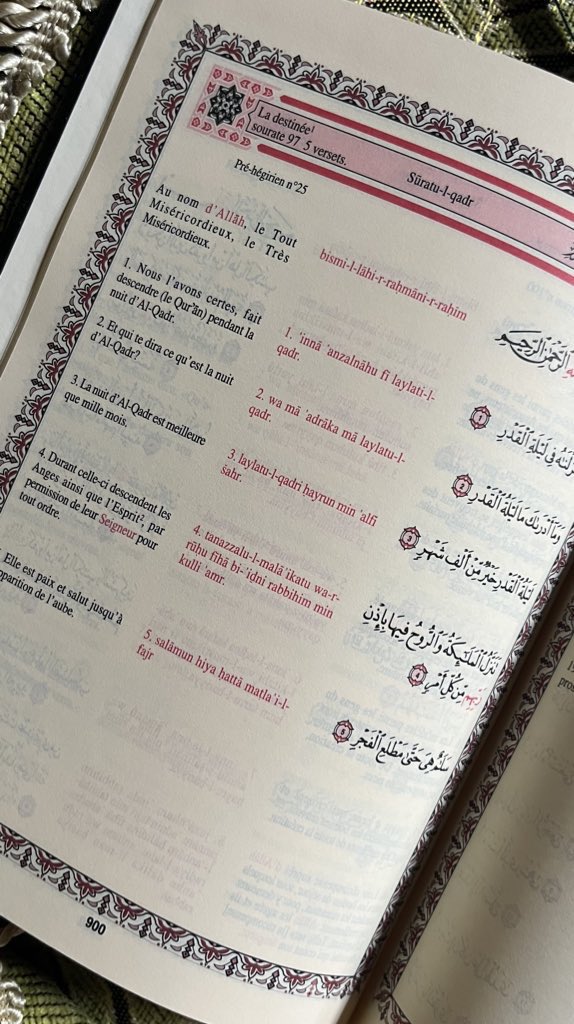 La destinée¹
sourate 97 5 versets.
Sūratu-l-qadr
Pré-hégirien n°25
Au nom d'Allāh, le Tout
Miséricordieux, le Très
Miséricordieux.
1. Nous l'avons certes, fait
descendre (le Qur'ān) pendant la
nuit d'Al-Qadr.
2. Et qui te dira ce qu'est la nuit
d'Al-Qadr?
3. La nuit d'Al-Qadr est meilleure
que mille mois.
4. Durant celle-ci descendent les
Anges ainsi que l'Esprit², par
permission de leur Seigneur pour
tout ordre.
Elle est paix et salut jusqu'à
apparition de l'aube.
bismi-l-lāhi-r-raḥmāni-r-raḥim
1. 'innā 'anzalnāhu fī laylati-l-
qadr.
2. wa mā 'adrāka mā laylatu-l-
qadr.
3. laylatu-l-qadri ḥayrun min 'alfi
šahr.
4. tanazzalu-l-malā'ikatu wa-r-
rūhu fihā bi-'idni rabbihim min
kulli 'amr.
5. salāmun hiya ḥattā maṭla'i-l-
fajr
الرَّحْمَٰنِ الرَّحِيمِ
فِي لَيْلَةِ الْقَدْرِ 1
وَمَا أَدْرَىٰكَ مَا لَيْلَةُ الْقَدْرِ 2
لَيْلَةُ الْقَدْرِ خَيْرٌ مِّنْ أَلْفِ شَهْرٍ 3
تَنَزَّلُ الْمَلَٰٓئِكَةُ وَالرُّوحُ فِيهَا بِإِذْنِ
رَبِّهِم مِّن كُلِّ أَمْرٍ 4
سَلَٰمٌ هِيَ حَتَّىٰ مَطْلَعِ الْفَجْرِ 5
900